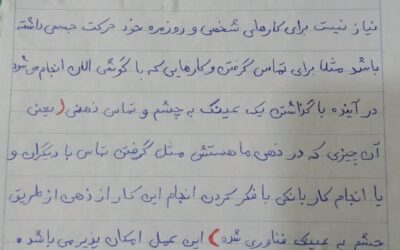 نیاز نیست برای کارهای شخصی و روزمره خود حرکت جسمی داشته
باشد مثلا برای تماس گرفتن و کارهایی که با گوشی الان انجام می‌شود
در آینده با گذاشتن یک عینک به چشم و تماس ذهنی (یعنی
آن چیزی که در ذهن ما هستش مثل گرفتن تماس با دیگران و
یا انجام کار بانکی با فکر کردن انجام این کار از ذهن از طریق
چشم به عینک فناوری شده) این عمل امکان پذیر می باشد.